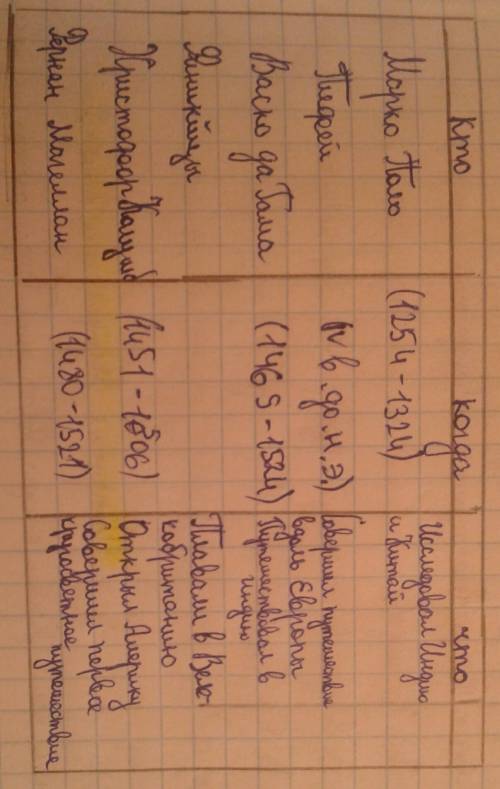 Кто
когда
что
Марко Поло
(1254-1324)
Исследовал Индию
и Китай
Пифей
IV в. до. н. э.)
Совершил путешествие
вдоль Европы
Васко да Гама
(1469-1524)
Путешествовал в
индию
Финикийцы
Плавали в Вели-
кобританию
Христофор Колумб
(1451-1506)
Открыл Америку
Фернан Магеллан
(1480-1521)
Совершил первое
кругосветное
путешествие